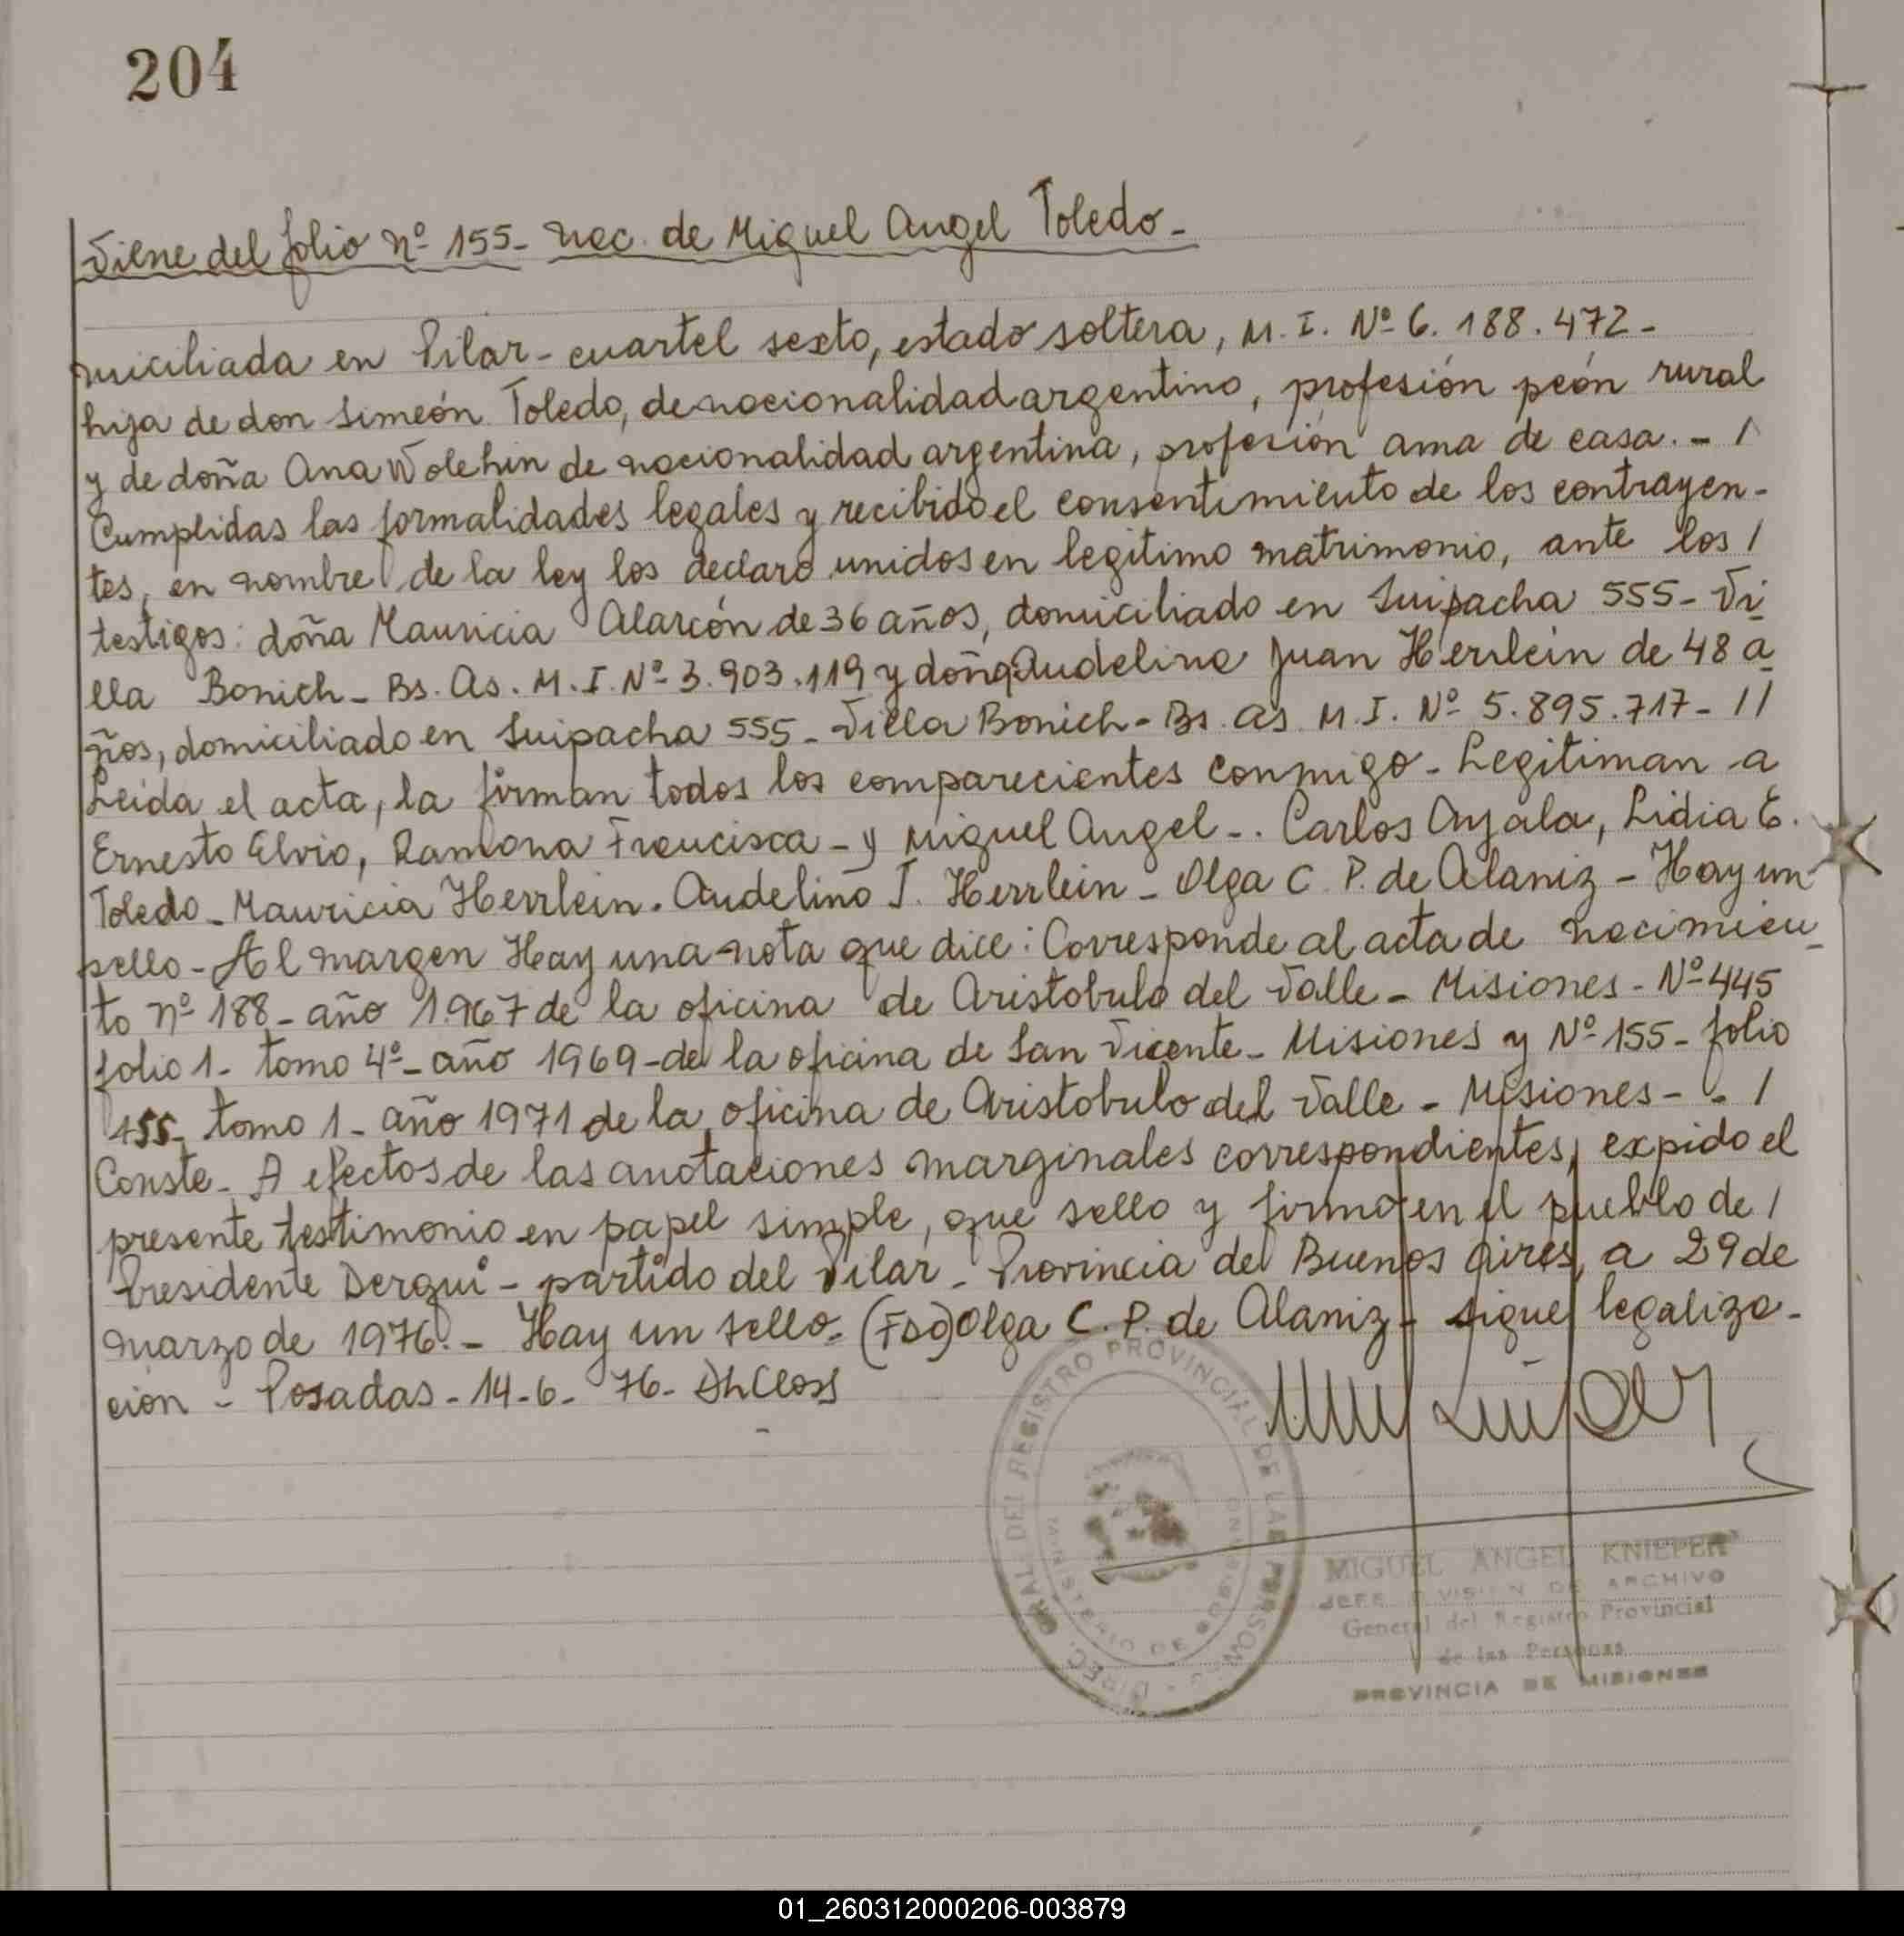 204
Viene del folio nº 155 - nac. de Miguel Angel Toledo -
miciliada en Pilar - cuartel sexto, estado soltera, M. I. Nº 6.188.472 -
hija de don Simeón Toledo, de nacionalidad argentino, profesión peón rural
y de doña Ana Wolehin de nacionalidad argentina, profesión ama de casa. - /
Cumplidas las formalidades legales y recibido el consentimiento de los contrayen-
tes, en nombre de la ley los declaro unidos en legitimo matrimonio, ante los /
testigos: doña Mauricia Alarcón de 36 años, domiciliado en Suipacha 555 - Vi
lla Bonich - Bs. As. M. I. Nº 3.903.119 y doña Audelino Juan Herrlein de 48 a
ños, domiciliado en Suipacha 555 - Villa Bonich - Bs. As. M. I. Nº 5.895.717 - //
Leida el acta, la firman todos los comparecientes conmigo - Legitiman a
Ernesto Elvio, Ramona Francisca - y Miguel Angel - . Carlos Ayala, Lidia E.
Toledo - Mauricia Herrlein. Audelino J. Herrlein - Olga C. P. de Alaniz - Hay un
sello - Al margen Hay una nota que dice: Corresponde al acta de nacimien_
to nº 188 - año 1.967 de la oficina de Aristobulo del Valle - Misiones - Nº 445
folio 1 - tomo 4º - año 1969 - de la oficina de San Vicente - Misiones y Nº 155 - folio
155 - tomo 1 - año 1971 de la oficina de Aristobulo del Valle - Misiones - . /
Conste - A efectos de las anotaciones marginales correspondientes, expido el
presente testimonio en papel simple, que sello y firmo en el pueblo de /
Presidente Derqui - partido del Pilar - Provincia de Buenos Aires, a 29 de
marzo de 1976. - Hay un sello - (Fdo) Olga C. P. de Alaniz - sigue legaliza-
ción - Posadas - 14 - 6 - 76 -
DIREC. GRAL. DEL REGISTRO PROVINCIAL DE LAS PERSONAS
MINISTERIO DE GOBIERNO
MIGUEL ANGEL KNIEPER
JEFE DIVISION DE ARCHIVO
General del Registro Provincial
de las Personas
PROVINCIA DE MISIONES
01_260312000206-003879